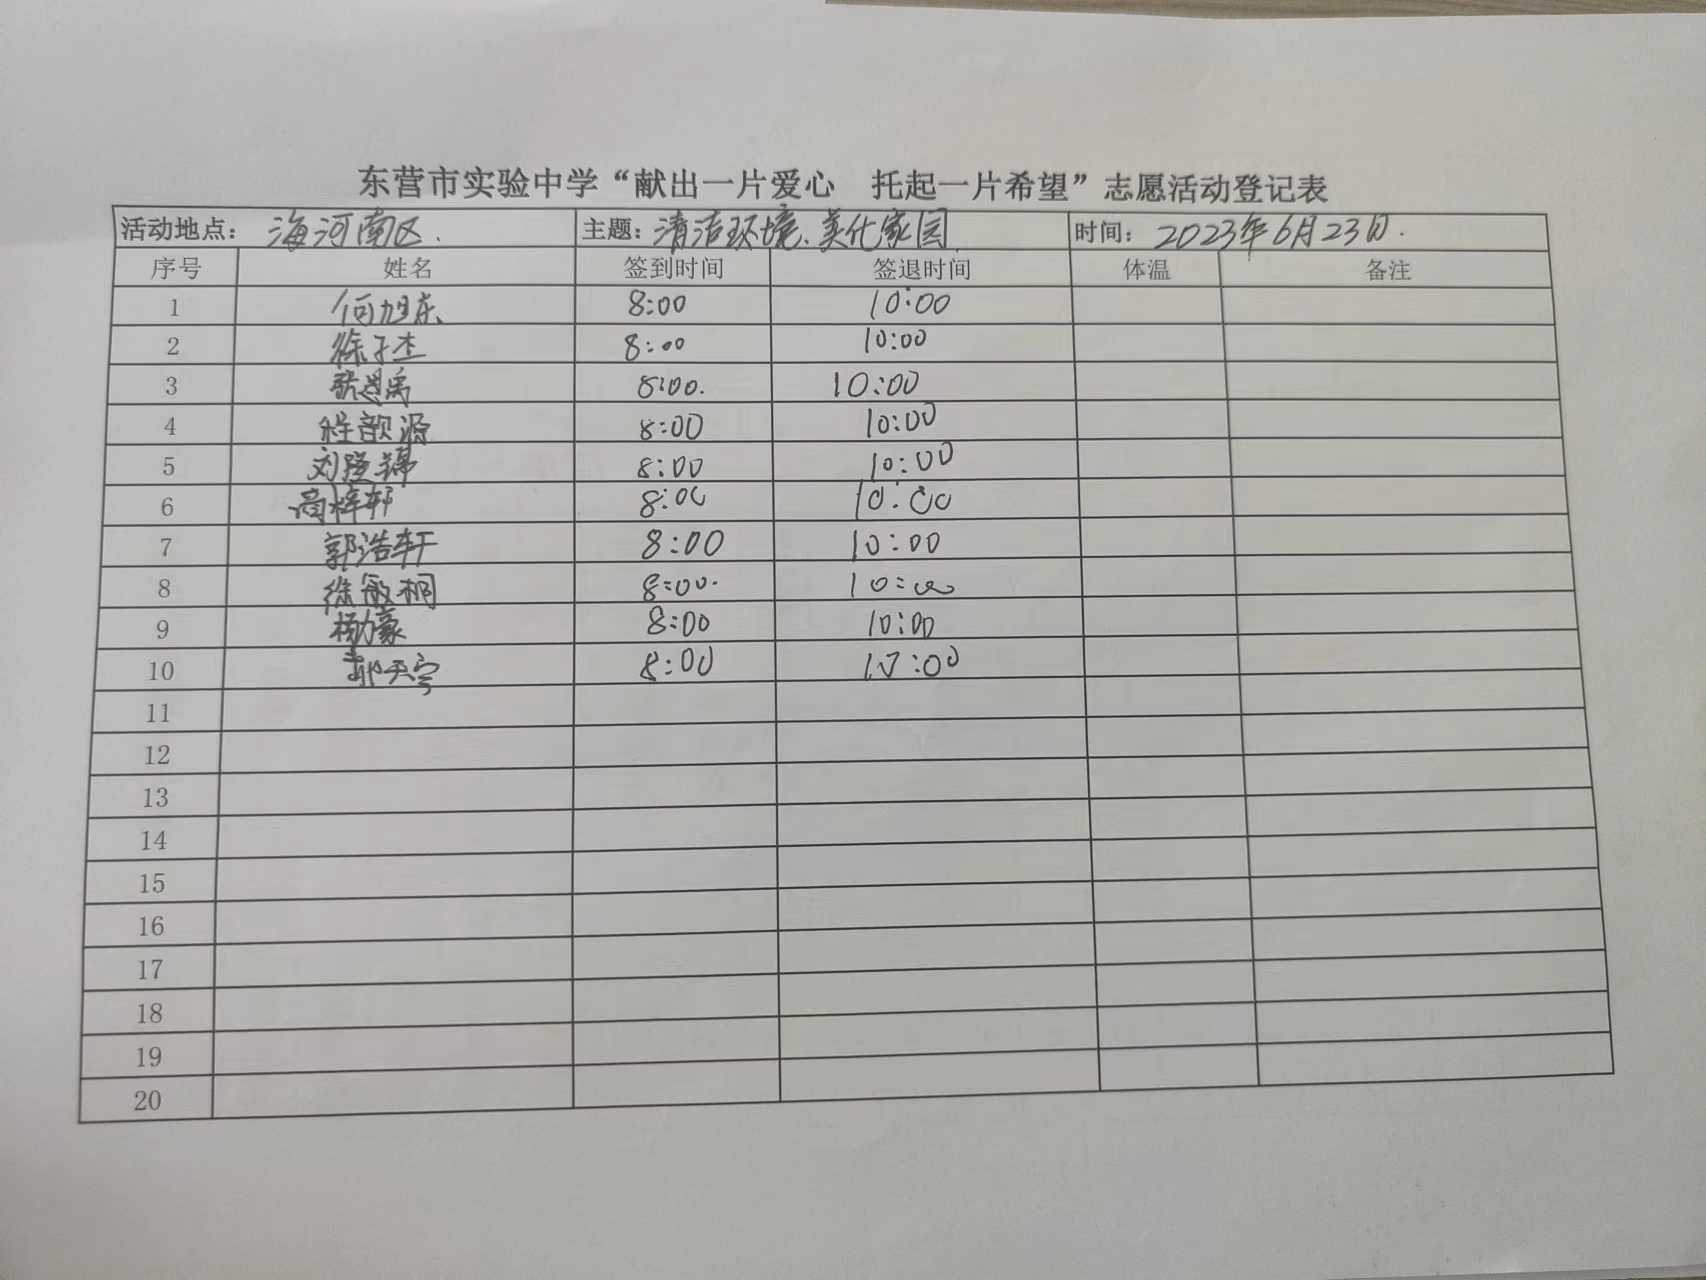 东营市实验中学“献出一片爱心 托起一片希望”志愿活动登记表
活动地点： 海河南区. 主题：清洁环境、美化家园 时间： 2023年6月23日.
序号 姓名 签到时间 签退时间 体温 备注
1 何旭东 8:00 10:00
2 徐子杰 8:00 10:00
3 张恩禹 8:00. 10:00
4 程歆源 8:00 10:00
5 刘隆锦 8:00 10:00
6 高梓轩 8:00 10:00
7 郭浩轩 8:00 10:00
8 徐敏桐 8:00. 10:00
9 杨力豪 8:00 10:00
10 郭天宇 8:00 10:00
11
12
13
14
15
16
17
18
19
20